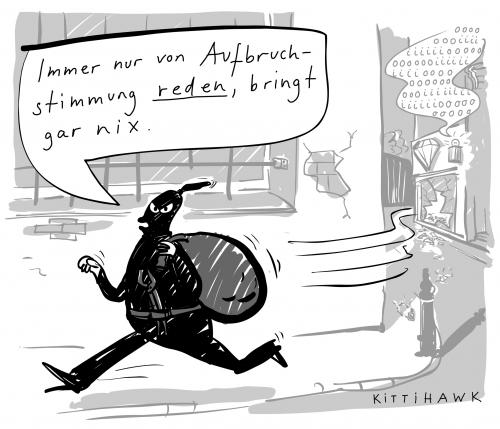 Immer nur von Aufbruch-
stimmung reden, bringt
gar nix.
KITTIHAWK